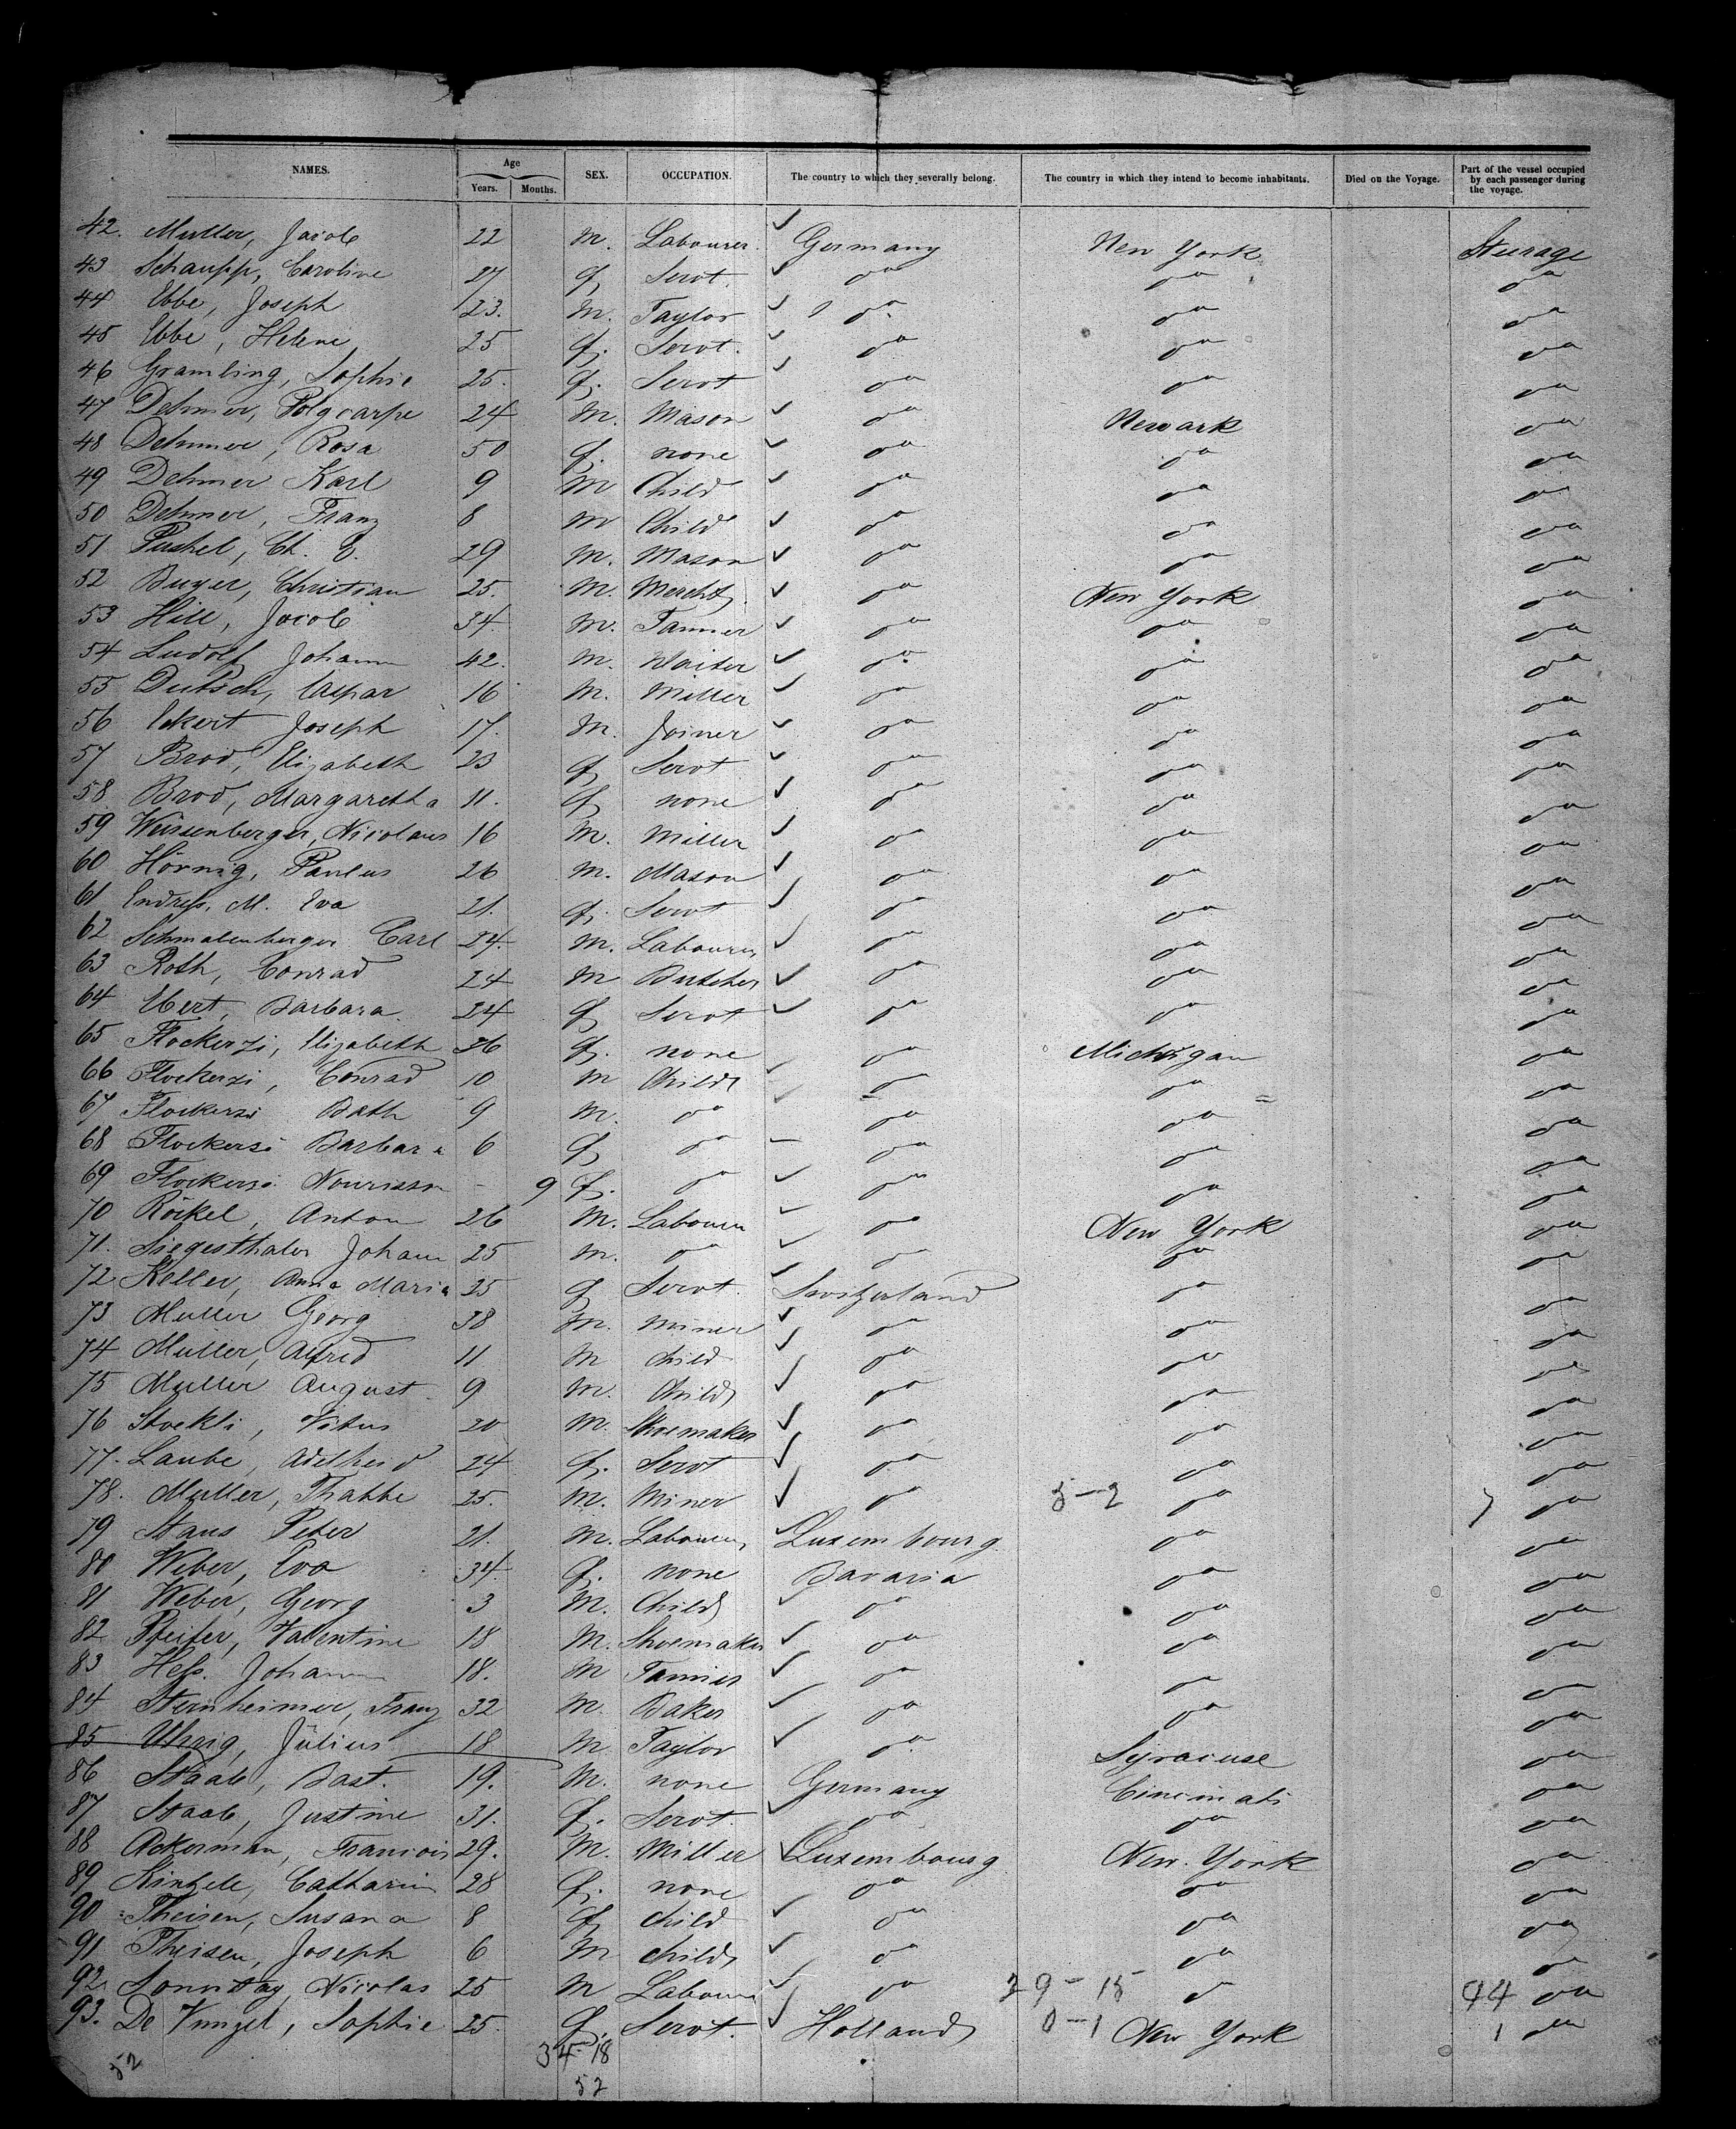 NAMES. Age Years. Months. SEX. OCCUPATION. The country to which they severally belong. The country in which they intend to become inhabitants. Died on the Voyage. Part of the vessel occupied by each passenger during the voyage.
42. Muller, Jacob 22 M. Labourer. Germany New York Steerage
43 Schaupp, Caroline 27 f Servt. do do do
44 Ebbe, Joseph 23. M. Taylor do do do
45 Ebbe, Helene 25 f. Servt. do do do
46 Grambling, Sophie 25. f. Servt do do do
47 Dehmer, Polycarpe 24 M. Mason do Newark do
48 Dehmer, Rosa 50 f. none do do do
49 Dehmer Karl 9 M Child do do do
50 Dehmer, Franz 8 M Child do do do
51 Pushel, Ch. 29 M. Mason do do do
52 Buyer, Christian 25. M. Mercht do New York do
53 Hill, Jacob 34 M. Tanner do do do
54 Ludolf Johann 42. M. Waiter do do do
55 Dutsch, Caspar 16 M. Miller do do do
56 Eckert Joseph 17. M. Joiner do do do
57 Brod, Elizabeth 23 f Servt do do do
58 Brod, Margaretha 11. f none do do do
59 Weissenberger, Nicolaus 16 M. Miller do do do
60 Hörnig, Paulus 26 M. Mason do do do
61 Endress, M. Eva 21. f. Servt do do do
62 Schmalenberger Carl 24. M. Labourer do do do
63 Roth, Conrad 24 M Butcher do do do
64 Ebert, Barbara. 24 f Servt do do do
65 Flockerzi, Elizabeth 36 f. none do Michigan do
66 Flockerzi, Conrad 10 M Child do do do
67 Flockerzi Bath 9 M. do do do do
68 Flockerzi Barbara 6 f do do do do
69 Flockerzi Nourisson - 9 f. do do do do
70 Röckel, Anton 26 M. Labourer do New York do
71. Siegesthaler Johann 25 M. do do do do
72 Keller, Anna Maria 25 f Servt. Switzerland do
73 Muller Georg 38 M. Miner do do do
74 Muller, Alfred 11 M Child do do do
75 Muller August 9 M. Child do do do
76 Stockli, Vitus 20 M. Shoemaker do do do
77. Laube, Adelheid 24 f. Servt do do do
78. Muller, 25. M. Miner do 5-2 do 7 do
79 Staus Peter 21. M. Labourer Luxembourg do do
80 Weber, Eva 34. f. none Bavaria do do
81 Weber, Georg 3 M. Child do do do
82 Pfeifer, Valentine 18 M. Shoemaker do do do
83 Hess. Johann 18. M Tanner do do do
84 Sternheimer, Franz 32 M. Baker do do do
85 Uhrig, Julius 18 M Taylor do Syracuse do
86 Staab, Bast. 19. M. none Germany Cincinati do
87 Staab, Justine 31. f. Servt. do do do
88 Ackerman, Francois 29. M. Miller Luxembourg New York do
89 Kintzele, Catharina 28 f. none do do do
90 Theisen, Susana 8 f Child do do do
91 Theisen, Joseph 6 M Child do do do
92 Sonntag, Nicolas 25 M Labourer do 29-15 do 44 do
93. De Vungel, Sophie 25. f. Servt. Holland 0-1 New York 1 do
52 34 18
52